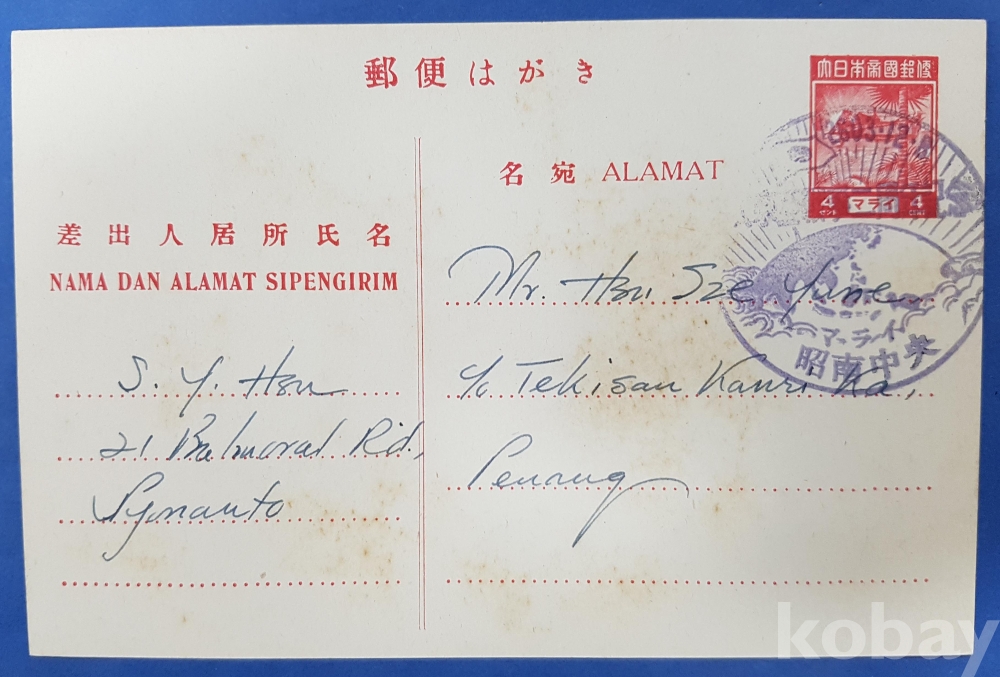 郵便はがき
大日本帝國郵便
2603.12.8
4 マライ 4
セント CENT
名宛 ALAMAT
差出人居所氏名
NAMA DAN ALAMAT SIPENGIRIM
Mr. Hsu Sze Yune
c/o Tekisan Kanri Ka,
Penang
S. Y. Hsu
21 Balmoral Rd,
Syonanto
マライ
昭南中央
kobay